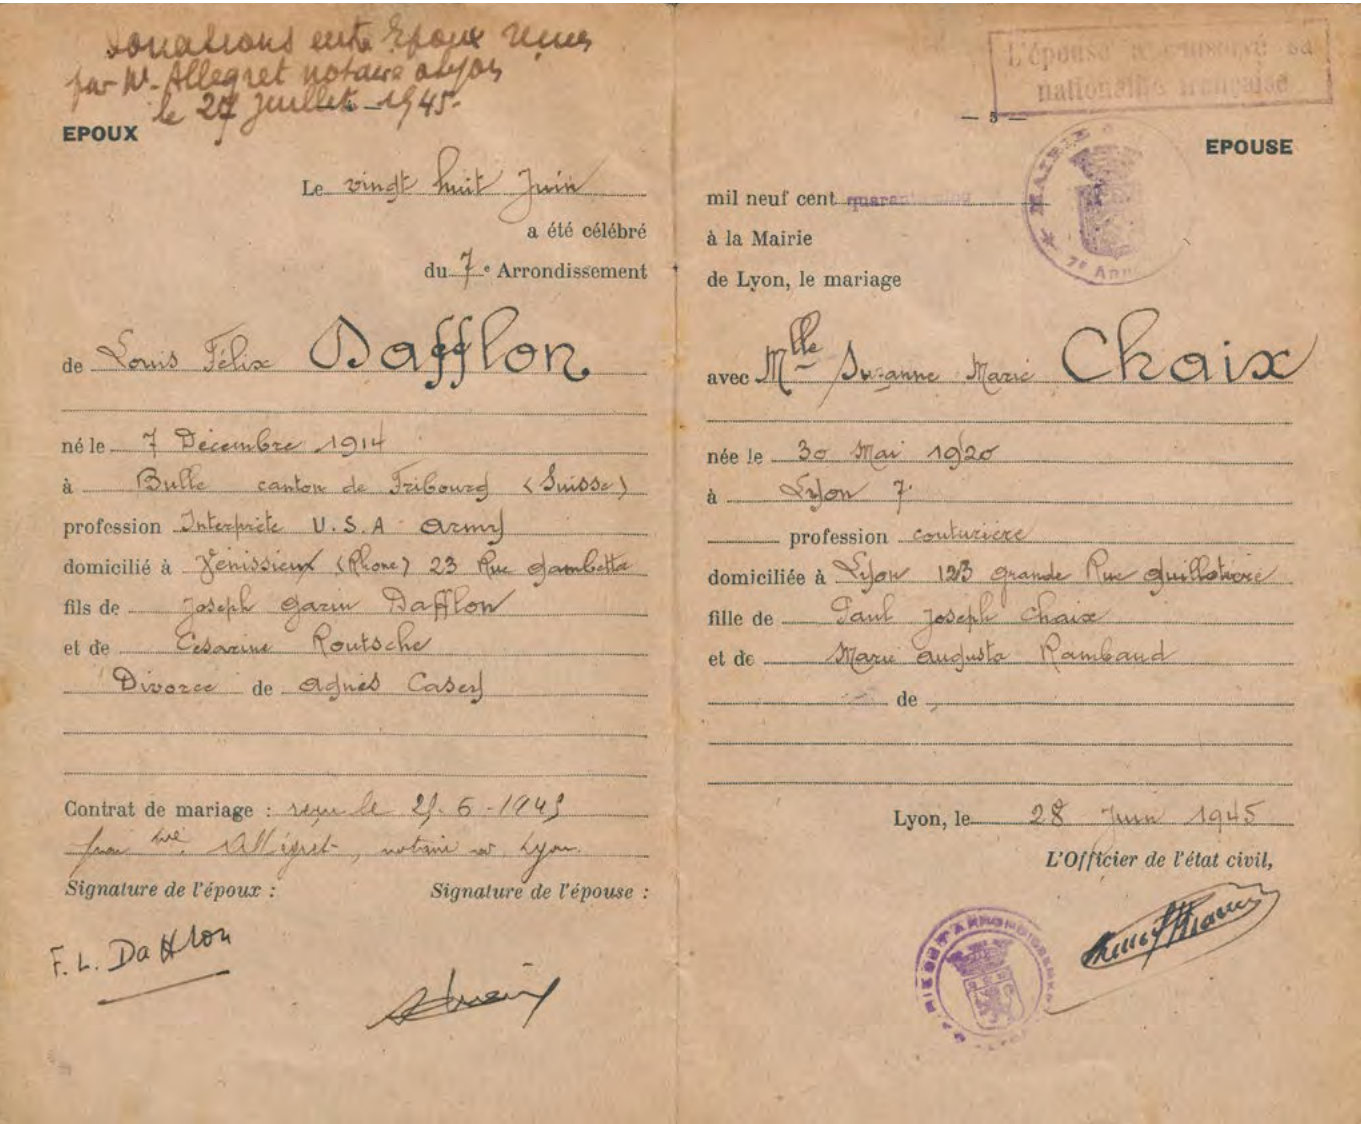 Donations entre Epoux reçues
par Me Allegret notaire à Lyon
le 27 Juillet 1945.
EPOUX
Le vingt huit Juin
a été célébré
du 7e Arrondissement
de Louis Félix Dafflon
né le 7 Décembre 1914
à Bulle canton de Fribourg (Suisse)
profession Interprète U.S.A Army
domicilié à Vénissieux (Rhone) 23 Rue Gambetta
fils de Joseph Garin Dafflon
et de Césarine Routsche
Divorcé de Agnès Casey
Contrat de mariage : reçu le 25-6-1945
par Me Allégret, notaire à Lyon.
Signature de l'époux : Signature de l'épouse :
F. L. Dafflon
L'épouse a conservé sa
nationalité française
— 5 —
EPOUSE
mil neuf cent quarante-cinq
à la Mairie
de Lyon, le mariage
MAIRIE
7e Arr
avec Mlle Suzanne Marie Chaix
née le 30 Mai 1920
à Lyon 7.
profession couturière
domiciliée à Lyon 123 grande Rue Guillotière
fille de Paul Joseph Chaix
et de Marie Augusta Rambaud
de
Lyon, le 28 Juin 1945
L'Officier de l'état civil,